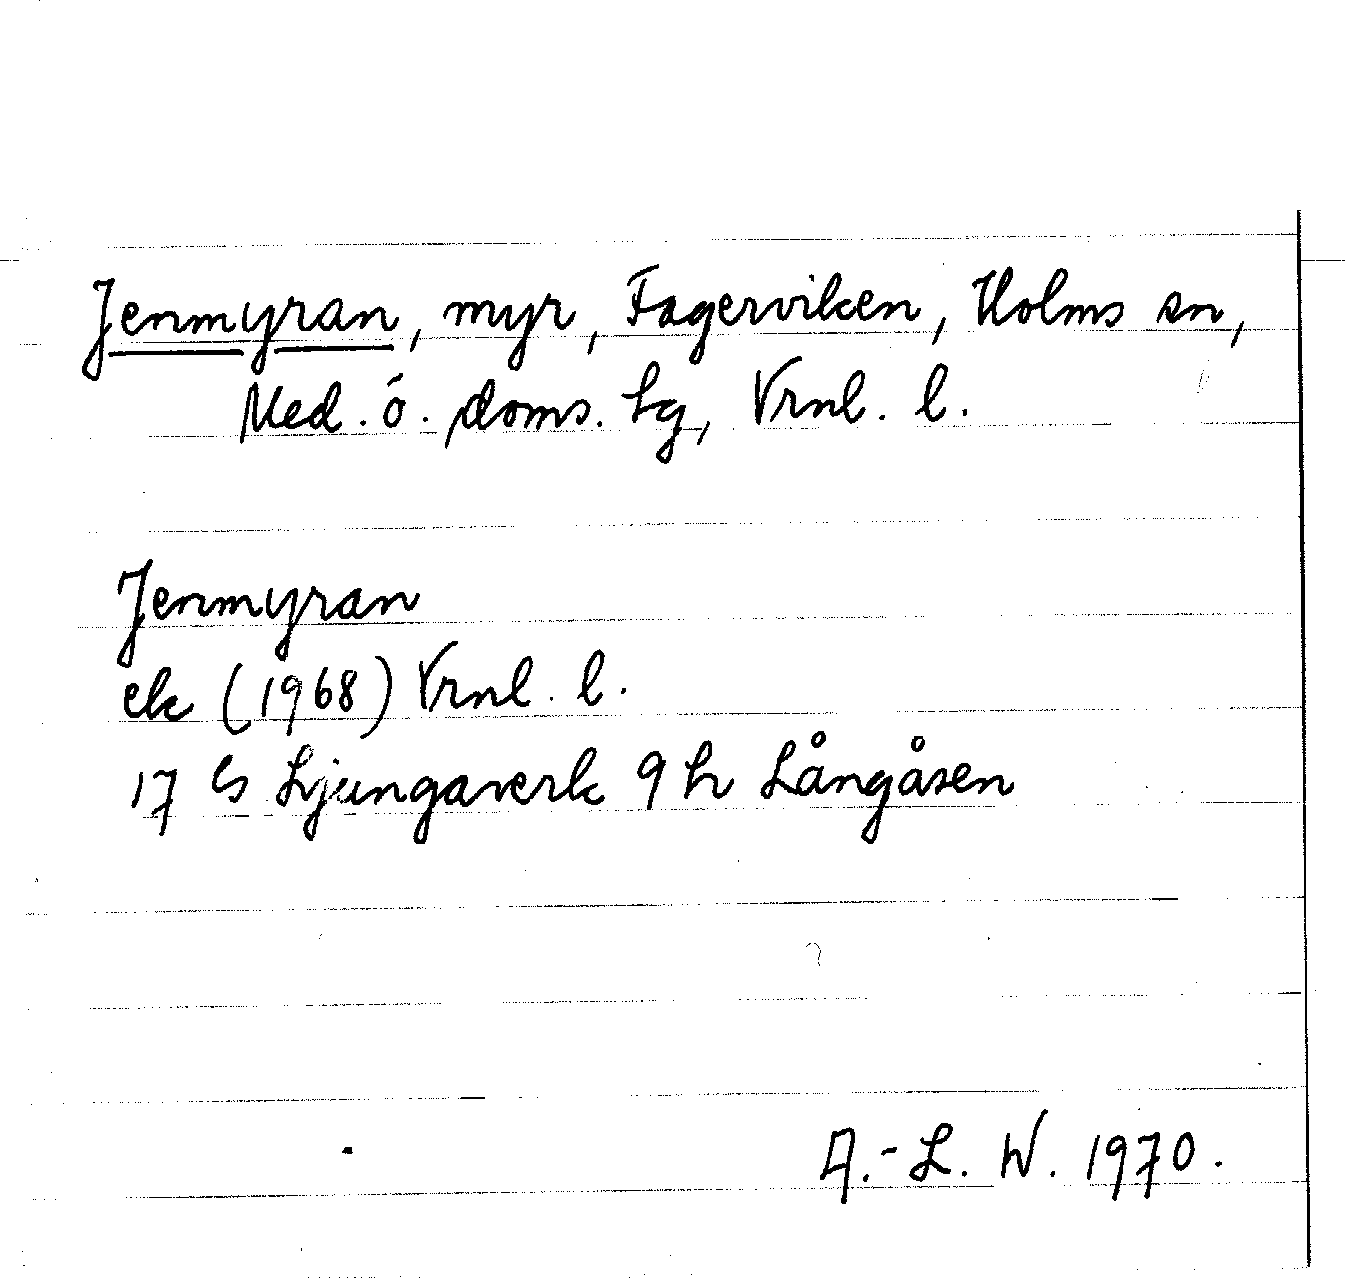 Jenmyran, myr, Fagerviken, Holms sn,
Med. ö. doms. lg, Vrnl. l.
Jenmyran
ek (1968) Vrnl. l.
17 Es Ljungaverk 9 h Långåsen
A.-L. W. 1970.